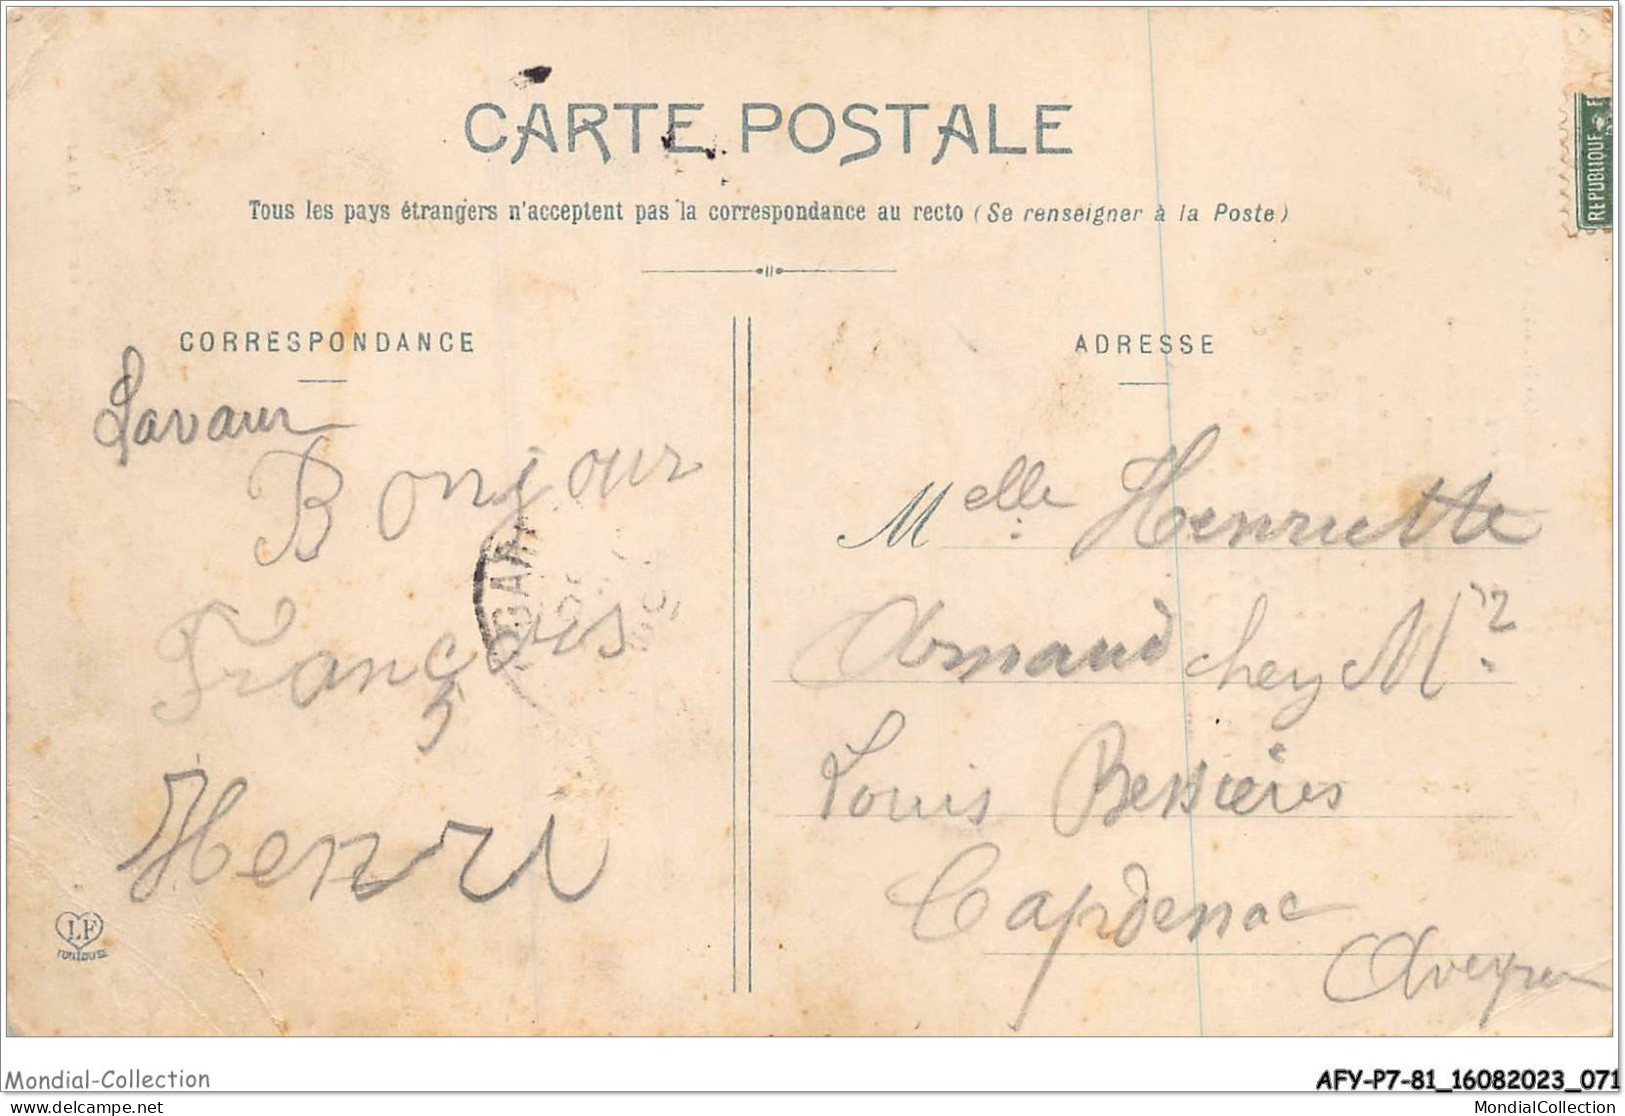 CARTE POSTALE
Tous les pays étrangers n'acceptent pas la correspondance au recto (Se renseigner à la Poste)
REPUBLIQUE
CORRESPONDANCE
ADRESSE
Lavaur
Bonjour
François
Henri
LF
TOULOUSE
Melle Henriette
Armaud chey Mr
Louis Bessières
Capdenac
Aveyron
Mondial-Collection
AFY-P7-81_16082023_071
delcampe.net
MondialCollection